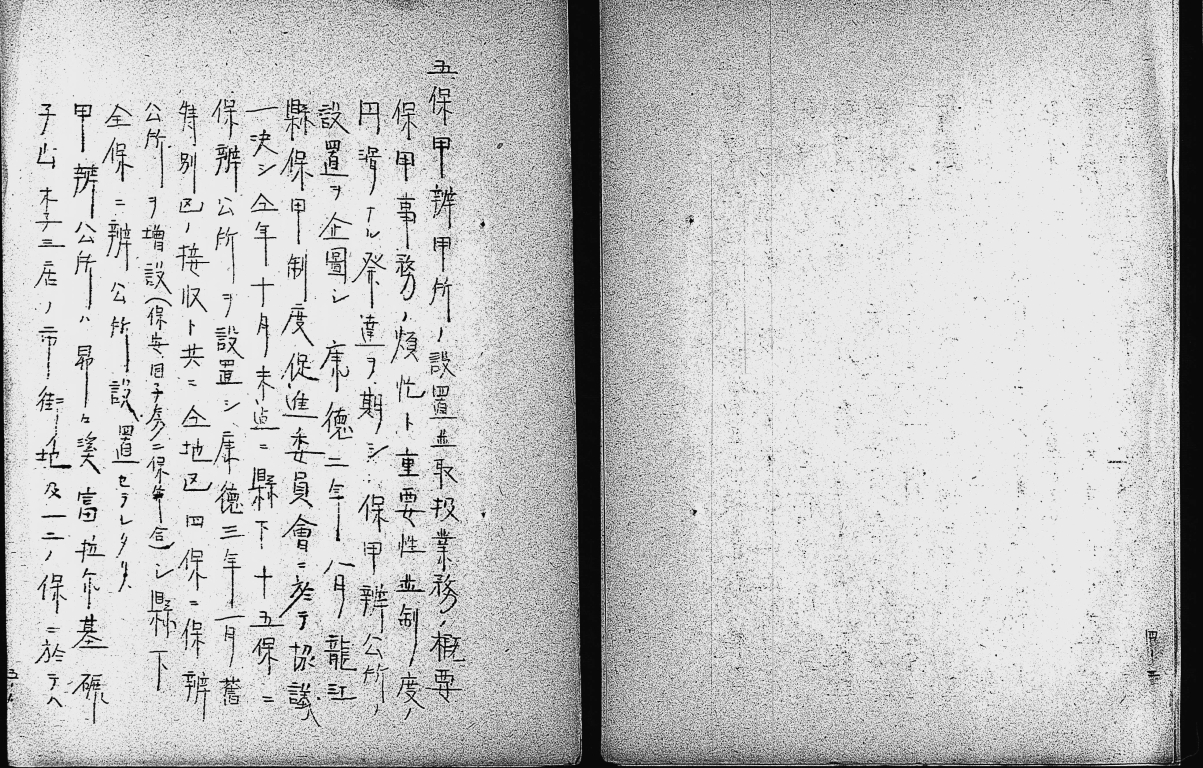 五 保甲辨甲所ノ設置並取扱業務ノ概要
保甲事務ノ煩忙ト重要性並制度ノ
円滑ナル発達ヲ期シ保甲辨公所ノ
設置ヲ企圖シ康德二年八月龍江
縣保甲制度促進委員會ニ於テ協議
一決シ仝年十月末迠ニ縣下十五保ニ
保辨公所ヲ設置シ康德三年一月舊
特別区ノ接収ト共ニ仝地区四保ニ保辨
公所ヲ増設(保安ニ保)シ縣下
全保ニ辨公所設置セラレタリ
甲辨公所ハ昂々溪富拉尓基碾
子山 ノ市街地及一二ノ保ニ於テハ